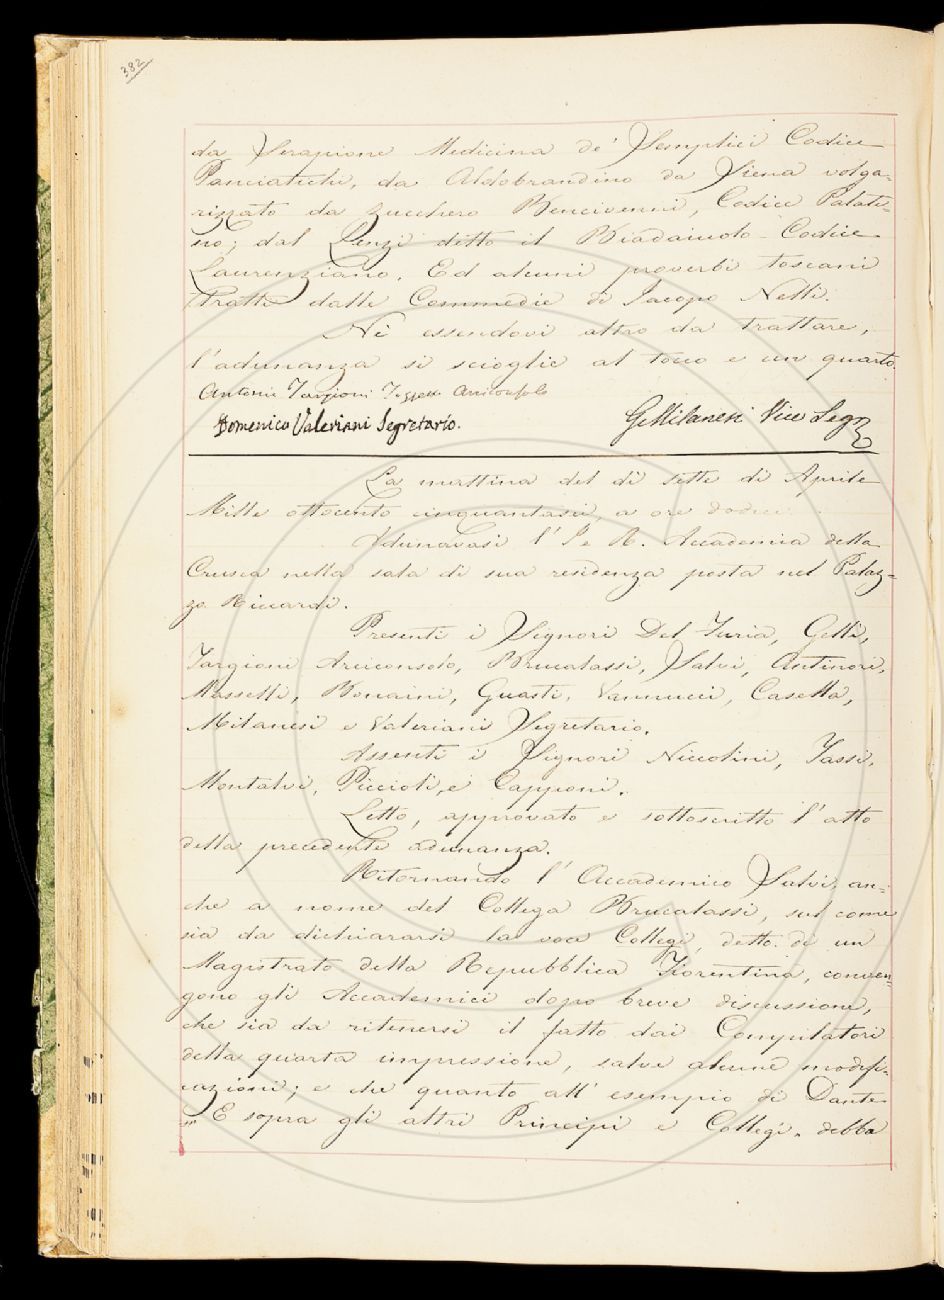 382
da Serapione Medicina de' Semplici Codice
Panciatichi, da Aldobrandino da Siena volga-
rizzato da Zucchero Bencivenni, Codice Palati-
no; dal Lenzi ditto il Biadaiuolo Codice
Laurenziano. Ed alcuni proverbi toscani
tratti dalle Commedie di Jacopo Nelli.
Nè essendovi altro da trattare,
l'adunanza si scioglie al tocco e un quarto.
Antonio Targioni Tozzetti Arciconsolo
Domenico Valeriani Segretario.
G. Milanesi Vice Segr
La mattina del dì sette di Aprile
Mille ottocento cinquantasei, a ore dodici
Adunavasi l'I e R. Accademia della
Crusca nella sala di sua residenza posta nel Palaz-
zo Riccardi.
Presenti i Signori Del Furia, Gelli,
Targioni Arciconsolo, Brucalassi, Salvi, Antinori,
Masselli, Bonaini, Guasti, Vannucci, Casella,
Milanesi e Valeriani Segretario.
Assenti i Signori Niccolini, Tassi,
Montalvi, Piccioli, e Capponi.
Letto, approvato e sottoscritto l'atto
della precedente adunanza.
Ritornando l'Accademico Salvi, an-
che a nome del Collega Brucalassi, sul come
sia da dichiararsi la voa Collegi, detto di un
Magistrato della Repubblica Fiorentina, conven-
gono gli Accademici dopo breve discussione,
che sia da ritenersi il fatto dai Compilatori
della quarta impressione, salve alcune modifi-
cazioni; e che quanto all' esempio di Dante
" E sopra gli altri Principi e Collegi " debba